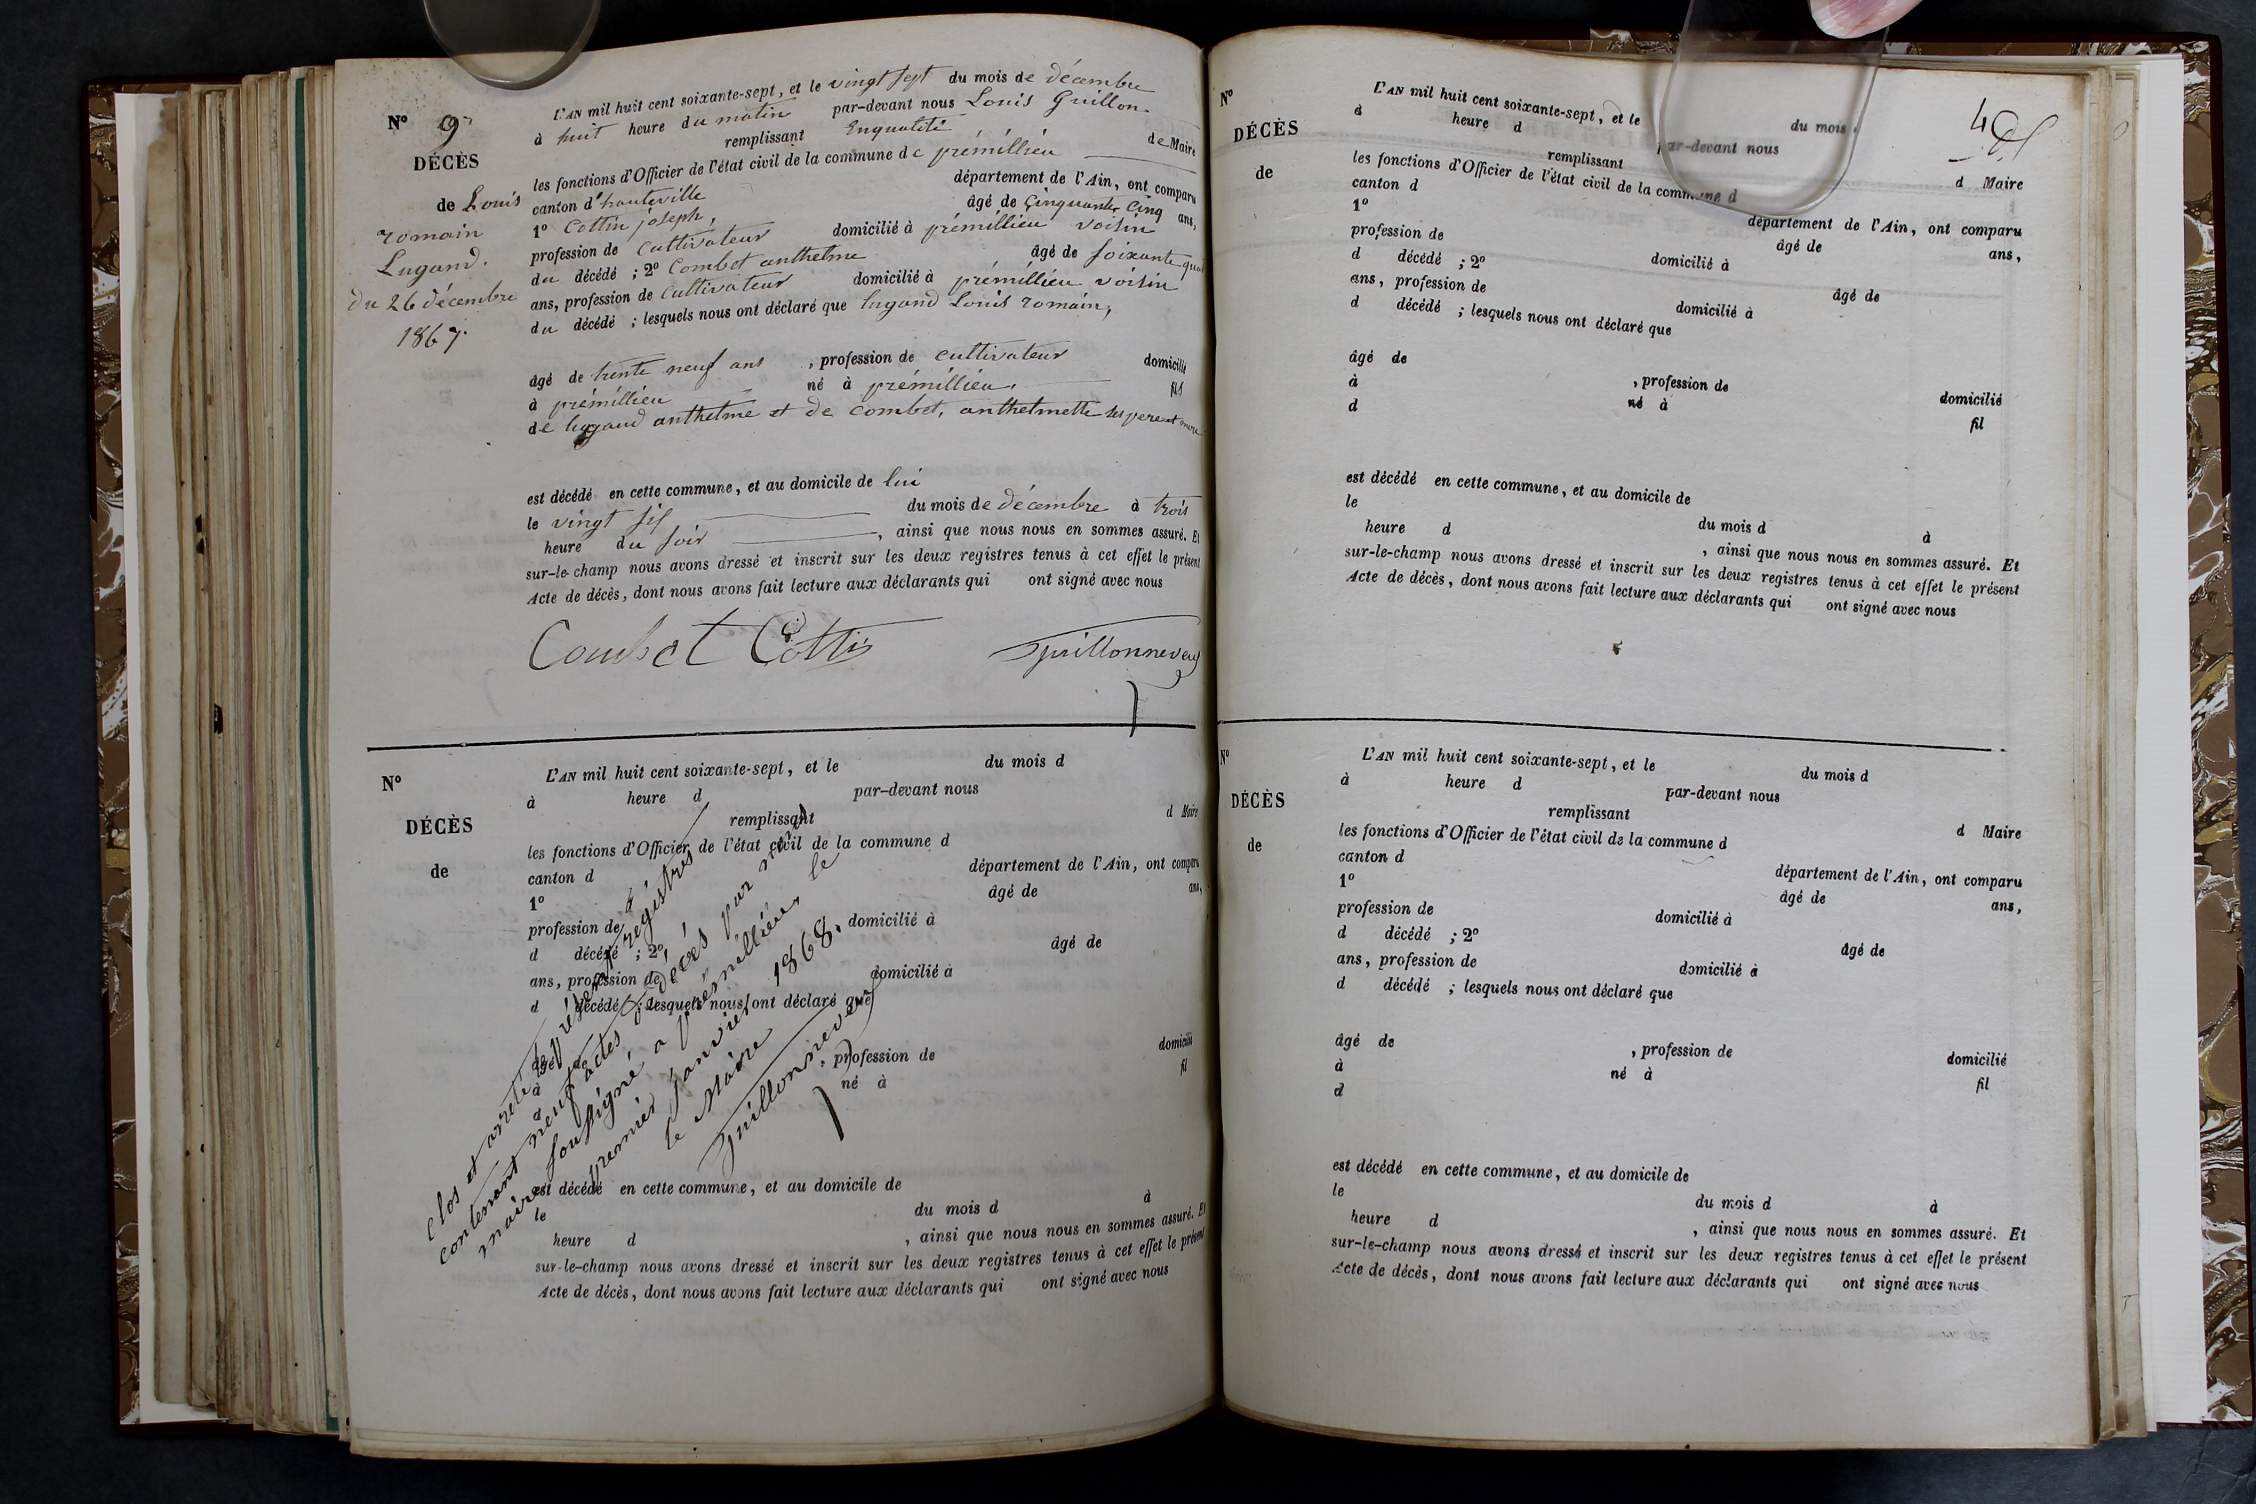 N° 9
DÉCÈS
de Louis
romain
Lugand.
du 26 décembre
1867.
L'AN mil huit cent soixante-sept, et le vingt sept du mois de décembre
à huit heure du matin par-devant nous Louis Guillon-
remplissant Enqualité de Maire
les fonctions d'Officier de l'état civil de la commune de prémillieu
canton d'hauteville département de l'Ain, ont comparu
1° Cottin joseph, âgé de Cinquante Cinq ans,
profession de Cultivateur domicilié à prémillieu voisin
du décédé ; 2° Combet anthelme âgé de soixante quat
ans, profession de Cultivateur domicilié à prémillieu voisin
du décédé ; lesquels nous ont déclaré que lugand Louis romain,
âgé de trente neuf ans , profession de cultivateur domicilié
à prémillieu né à prémillieu. fils
de lugand anthelme et de combet, anthelmette ses pere et mere
est décédé en cette commune, et au domicile de lui
le vingt six du mois de décembre à trois
heure du soir , ainsi que nous nous en sommes assuré. Et
sur-le-champ nous avons dressé et inscrit sur les deux registres tenus à cet effet le présent
Acte de décès, dont nous avons fait lecture aux déclarants qui ont signé avec nous
Combet Cottin Guillonnevey
N°
DÉCÈS
de
L'AN mil huit cent soixante-sept, et le du mois d
à heure d par-devant nous
remplissant d Maire
les fonctions d'Officier de l'état civil de la commune d
canton d département de l'Ain, ont comparu
1° âgé de ans,
profession de domicilié à
d décédé ; 2° âgé de
ans, profession de domicilié à
d décédé ; lesquels nous ont déclaré que
âgé de , profession de domicilié
à né à fil
d
est décédé en cette commune, et au domicile de
le du mois d à
heure d , ainsi que nous nous en sommes assuré. Et
sur-le-champ nous avons dressé et inscrit sur les deux registres tenus à cet effet le présent
Acte de décès, dont nous avons fait lecture aux déclarants qui ont signé avec nous
Clos et arreté le présent registres
contenant neuf actes de décès par nous
maire soussigné a prémillieu, le
premier janvier 1868.
le Maire
Guillonnevey
N°
DÉCÈS
de
L'AN mil huit cent soixante-sept, et le du mois
à heure d par-devant nous
remplissant d Maire
les fonctions d'Officier de l'état civil de la commune d
canton d département de l'Ain, ont comparu
1° âgé de ans,
profession de domicilié à
d décédé ; 2° âgé de
ans, profession de domicilié à
d décédé ; lesquels nous ont déclaré que
âgé de , profession de domicilié
à né à fil
d
est décédé en cette commune, et au domicile de
le du mois d à
heure d , ainsi que nous nous en sommes assuré. Et
sur-le-champ nous avons dressé et inscrit sur les deux registres tenus à cet effet le présent
Acte de décès, dont nous avons fait lecture aux déclarants qui ont signé avec nous
N°
DÉCÈS
de
L'AN mil huit cent soixante-sept, et le du mois d
à heure d par-devant nous
remplissant d Maire
les fonctions d'Officier de l'état civil de la commune d
canton d département de l'Ain, ont comparu
1° âgé de ans,
profession de domicilié à
d décédé ; 2° âgé de
ans, profession de domicilié à
d décédé ; lesquels nous ont déclaré que
âgé de , profession de domicilié
à né à fil
d
est décédé en cette commune, et au domicile de
le du mois d à
heure d , ainsi que nous nous en sommes assuré. Et
sur-le-champ nous avons dressé et inscrit sur les deux registres tenus à cet effet le présent
Acte de décès, dont nous avons fait lecture aux déclarants qui ont signé avec nous